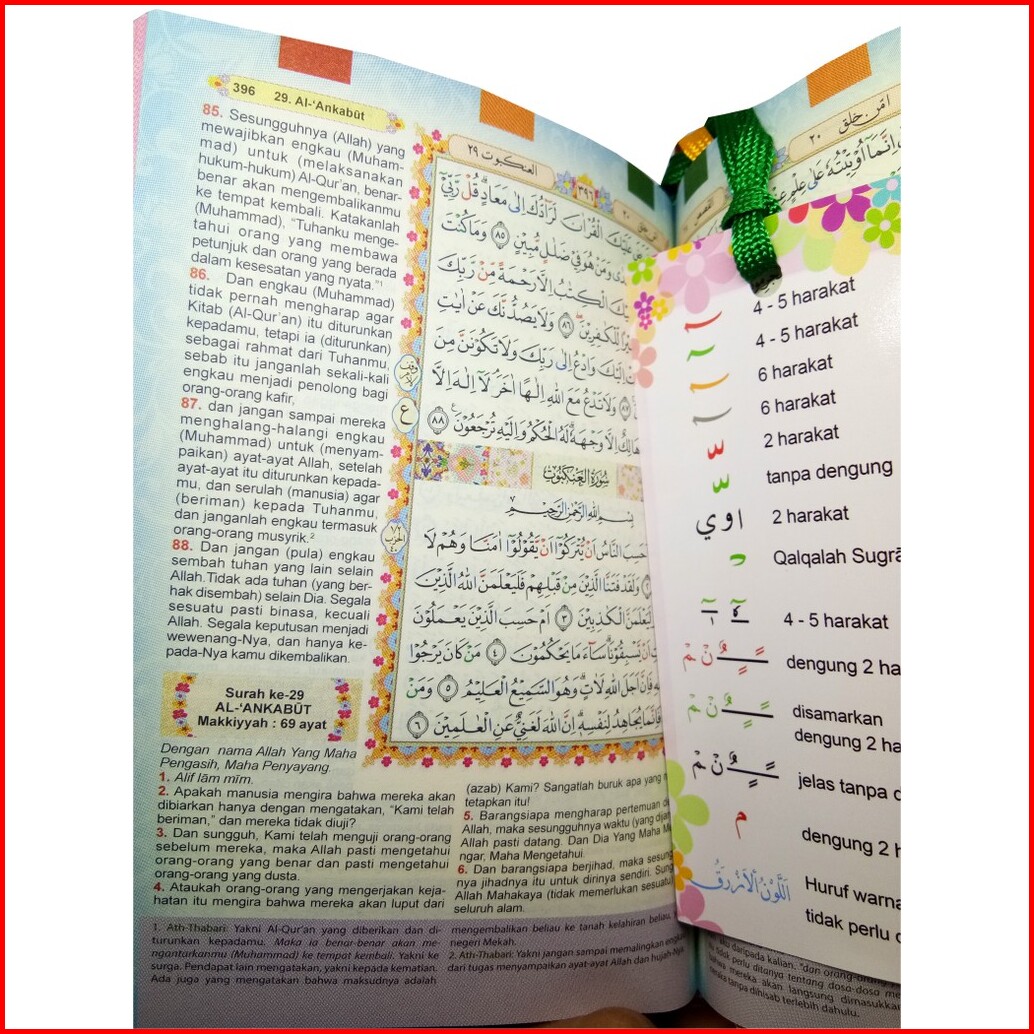 396 29. Al-‘Ankabūt
85. Sesungguhnya (Allah) yang
mewajibkan engkau (Muham-
mad) untuk (melaksanakan
hukum-hukum) Al-Qur’an, benar-
benar akan mengembalikanmu
ke tempat kembali. Katakanlah
(Muhammad), “Tuhanku menge-
tahui orang yang membawa
petunjuk dan orang yang berada
dalam kesesatan yang nyata.”¹
86. Dan engkau (Muhammad)
tidak pernah mengharap agar
Kitab (Al-Qur’an) itu diturunkan
kepadamu, tetapi ia (diturunkan)
sebagai rahmat dari Tuhanmu,
sebab itu janganlah sekali-kali
engkau menjadi penolong bagi
orang-orang kafir,
87. dan jangan sampai mereka
menghalang-halangi engkau
(Muhammad) untuk (menyam-
paikan) ayat-ayat Allah, setelah
ayat-ayat itu diturunkan kepada-
mu, dan serulah (manusia) agar
(beriman) kepada Tuhanmu,
dan janganlah engkau termasuk
orang-orang musyrik.²
88. Dan jangan (pula) engkau
sembah tuhan yang lain selain
Allah.Tidak ada tuhan (yang ber-
hak disembah) selain Dia. Segala
sesuatu pasti binasa, kecuali
Allah. Segala keputusan menjadi
wewenang-Nya, dan hanya ke-
pada-Nya kamu dikembalikan.
Surah ke-29
AL-‘ANKABŪT
Makkiyyah : 69 ayat
Dengan nama Allah Yang Maha
Pengasih, Maha Penyayang.
1. Alif lām mīm.
2. Apakah manusia mengira bahwa mereka akan
dibiarkan hanya dengan mengatakan, “Kami telah
beriman,” dan mereka tidak diuji?
3. Dan sungguh, Kami telah menguji orang-orang
sebelum mereka, maka Allah pasti mengetahui
orang-orang yang benar dan pasti mengetahui
orang-orang yang dusta.
4. Ataukah orang-orang yang mengerjakan keja-
hatan itu mengira bahwa mereka akan luput dari
(azab) Kami? Sangatlah buruk apa yang
tetapkan itu!
5. Barangsiapa mengharap pertemuan
Allah, maka sesungguhnya waktu (yang
Allah pasti datang. Dan Dia Yang Maha
ngar, Maha Mengetahui.
6. Dan barangsiapa berjihad, maka
nya jihadnya itu untuk dirinya sendiri.
Allah Mahakaya (tidak memerlukan sesuatu)
seluruh alam.
1. Ath-Thabari: Yakni Al-Qur’an yang diberikan dan di-
turunkan kepadamu. Maka ia benar-benar akan me-
ngantarkanmu (Muhammad) ke tempat kembali. Yakni ke
surga. Pendapat lain mengatakan, yakni kepada kematian.
Ada juga yang mengatakan bahwa maksudnya adalah
mengembalikan beliau ke tanah kelahiran beliau,
negeri Mekah.
2. Ath-Thabari: Yakni jangan sampai memalingkan
dari tugas menyampaikan ayat-ayat Allah dan
العنكبوت ٢٩
٣٩٦
امن خلق ٢٠
لَرَآدُّكَ اِلٰى مَعَادٍ قُلْ رَّبِّيْٓ
وَمَنْ هُوَ فِيْ ضَلٰلٍ مُّبِيْنٍ ٨٥ وَمَا كُنْتَ
الْكِتٰبُ اِلَّا رَحْمَةً مِّنْ رَّبِّكَ
لِّلْكٰفِرِيْنَ ٨٦ وَلَا يَصُدُّنَّكَ عَنْ اٰيٰتِ
اِلَيْكَ وَادْعُ اِلٰى رَبِّكَ وَلَا تَكُوْنَنَّ مِنَ
٨٧ وَلَا تَدْعُ مَعَ اللّٰهِ اِلٰهًا اٰخَرَ لَآ اِلٰهَ اِلَّا
هَالِكٌ اِلَّا وَجْهَهٗ لَهُ الْحُكْمُ وَاِلَيْهِ تُرْجَعُوْنَ ٨٨
سُوْرَةُ الْعَنْكَبُوْتِ
بِسْمِ اللّٰهِ الرَّحْمٰنِ الرَّحِيْمِ
النَّاسُ اَنْ يُّتْرَكُوْٓا اَنْ يَّقُوْلُوْٓا اٰمَنَّا وَهُمْ لَا
وَلَقَدْ فَتَنَّا الَّذِيْنَ مِنْ قَبْلِهِمْ فَلَيَعْلَمَنَّ اللّٰهُ الَّذِيْنَ
وَلَيَعْلَمَنَّ الْكٰذِبِيْنَ ٣ اَمْ حَسِبَ الَّذِيْنَ يَعْمَلُوْنَ
اَنْ يَّسْبِقُوْنَا سَآءَ مَا يَحْكُمُوْنَ ٤ مَنْ كَانَ يَرْجُوْا
فَاِنَّ اَجَلَ اللّٰهِ لَاٰتٍ وَهُوَ السَّمِيْعُ الْعَلِيْمُ ٥ وَمَنْ
فَاِنَّمَا يُجَاهِدُ لِنَفْسِهٖ اِنَّ اللّٰهَ لَغَنِيٌّ عَنِ الْعٰلَمِيْنَ ٦
امن خلق ٢٠
اِنَّمَآ اُوْتِيْتُهٗ عَلٰى عِلْمٍ
4 - 5 harakat
4 - 5 harakat
6 harakat
6 harakat
2 harakat
tanpa dengung
ا و ي 2 harakat
Qalqalah
4 - 5 harakat
dengung 2
disamarkan
dengung 2
jelas tanpa
م dengung 2
اَللَّوْنُ الْاَزْرَقُ Huruf
tidak perlu
aku daripada kalian.
tidak perlu ditanya tentang dosa-dosa
bahwa mereka akan langsung dimasukkan
neraka tanpa dihisab terlebih dahulu.